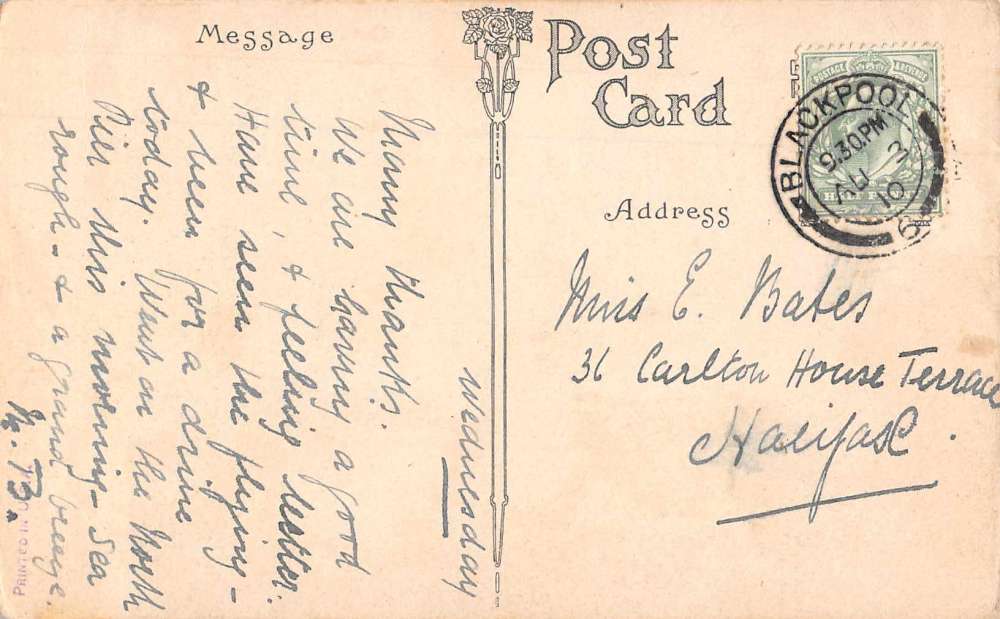 Message
Post
Card
Address
BLACKPOOL
9.30PM
AU 3
10
6
POSTAGE REVENUE
Wednesday
Many thanks.
We are having a good
time, & feeling better.
Have seen the flying-
& been for a drive
today. Went on the North
Pier this morning - Sea
rough - & a grand breeze.
Miss E. Bates
36 Carlton House Terrace
Halifax.
PRINTED IN